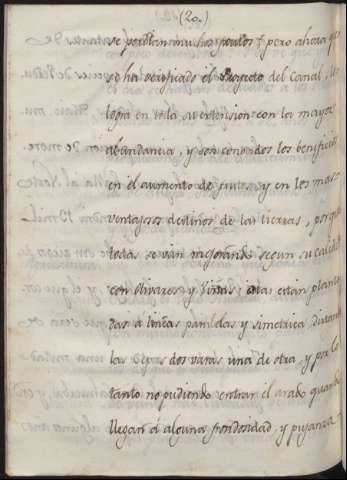 (20.)
se perdian muchos pueblos; pero ahora que
se ha verificado el Proyecto del Canal, se
logra en toda su extension con la mayor
abundancia, y son conocidos los beneficios
en el aumento de frutos, y en los mas
ventajosos destinos de las tierras, porque
todas se van mejorando segun su calidad
con olivares y Viñas; estas estan planta
das à lineas paralelas y simetrica distancia
las Cepas dos varas una de otra, y por lo
tanto no pudiendo entrar el arado quando
llegan á alguna frondosidad, y pujanza